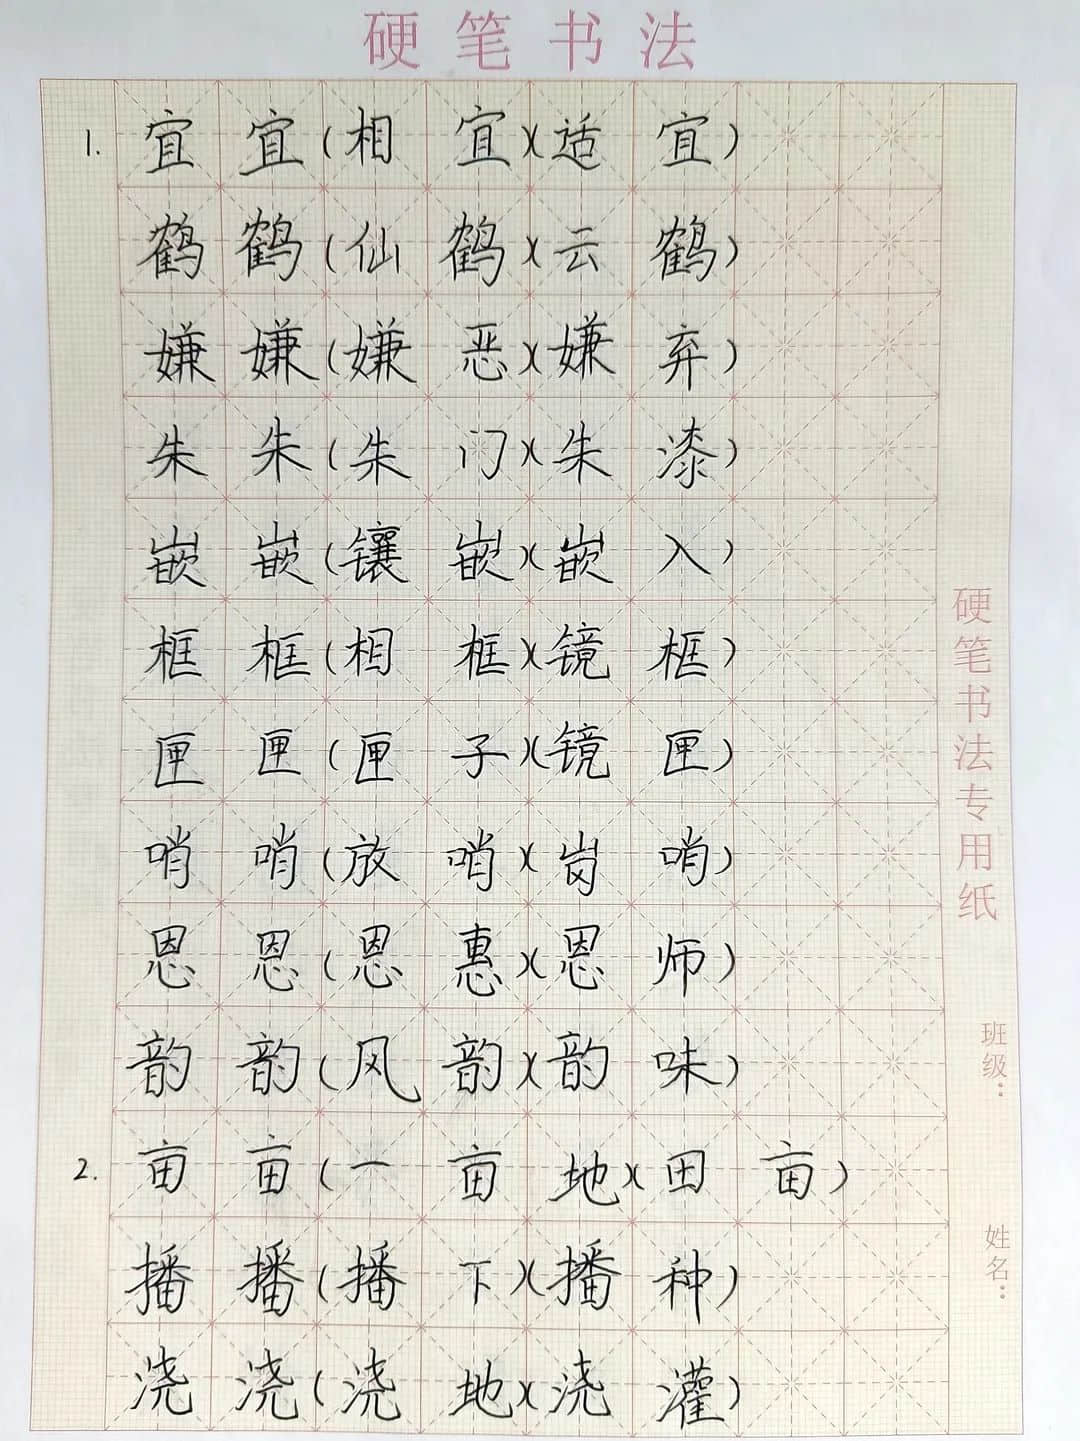 硬笔书法
1. 宜 宜 (相 宜)(适 宜)
鹤 鹤 (仙 鹤)(云 鹤)
嫌 嫌 (嫌 恶)(嫌 弃)
朱 朱 (朱 门)(朱 漆)
嵌 嵌 (镶 嵌)(嵌 入)
框 框 (相 框)(镜 框)
匣 匣 (匣 子)(镜 匣)
哨 哨 (放 哨)(岗 哨)
恩 恩 (恩 惠)(恩 师)
韵 韵 (风 韵)(韵 味)
2. 亩 亩 (一 亩 地)(田 亩)
播 播 (播 下)(播 种)
浇 浇 (浇 地)(浇 灌)
硬笔书法专用纸
班级：
姓名：